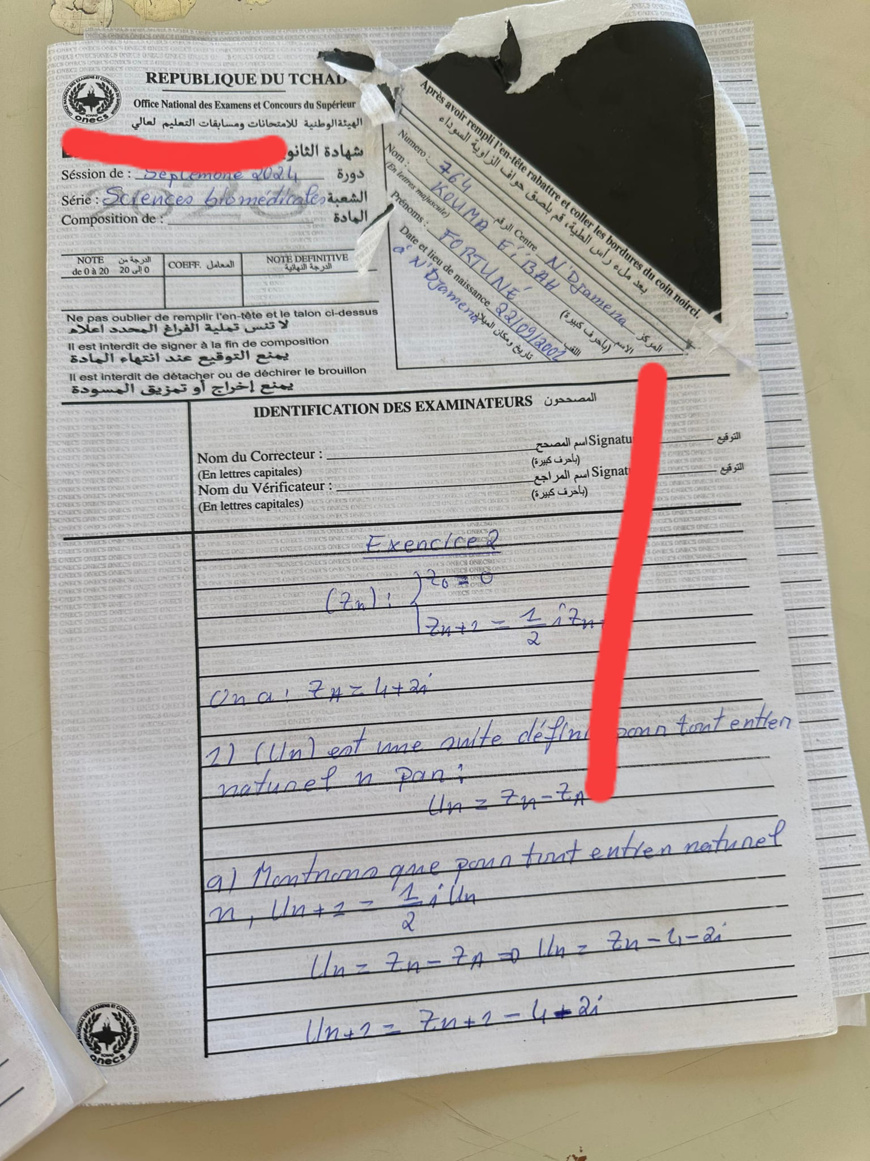 REPUBLIQUE DU TCHAD
Office National des Examens et Concours du Supérieur
الهيئة الوطنية للامتحانات ومسابقات التعليم لعالي
onecs
شهادة الثانو
Séssion de : Septembre 2024 دورة
Série : Sciences biomédicales الشعبة
Composition de : المادة
NOTE de 0 à 20 الدرجة من 0 إلى 20
COEFF. المعامل
NOTE DEFINITIVE الدرجة النهائية
Ne pas oublier de remplir l'en-tête et le talon ci-dessus
لا تنس تملية الفراغ المحدد اعلاه
Il est interdit de signer à la fin de composition
يمنع التوقيع عند انتهاء المادة
Il est interdit de détacher ou de déchirer le brouillon
يمنع إخراج أو تمزيق المسودة
Après avoir rempli l'en-tête rabattre et coller les bordures du coin noirci.
بعد ملء راس الطية، قم بلصق حواف الزاوية السوداء
Numero : 764 الرقم Centre N'Djamena المركز
Nom : KOUMA EÏBAH الاسم
(En lettres majuscule) (بأحرف كبيرة)
Prénoms : FORTUNÉ اللقب
Date et lieu de naissance 22/09/2002 تاريخ ومكان الميلاد
à N'Djamena
IDENTIFICATION DES EXAMINATEURS المصححون
Nom du Correcteur : اسم المصحح Signatu التوقيع
(En lettres capitales) (بأحرف كبيرة)
Nom du Vérificateur : اسم المراجع Signat التوقيع
(En lettres capitales) (بأحرف كبيرة)
Exercice 2
(Zn) : { z0 = 0
Zn+1 = 1/2 i Zn
On a : ZA = 4+2i
1) (Un) est une suite défin pour tout entier
naturel n par :
Un = Zn - ZA
a) Montrons que pour tout entier naturel
n, Un+1 = 1/2 i Un
Un = Zn - ZA ⇒ Un = Zn - 4 - 2i
Un+1 = Zn+1 - 4 - 2i
onecs